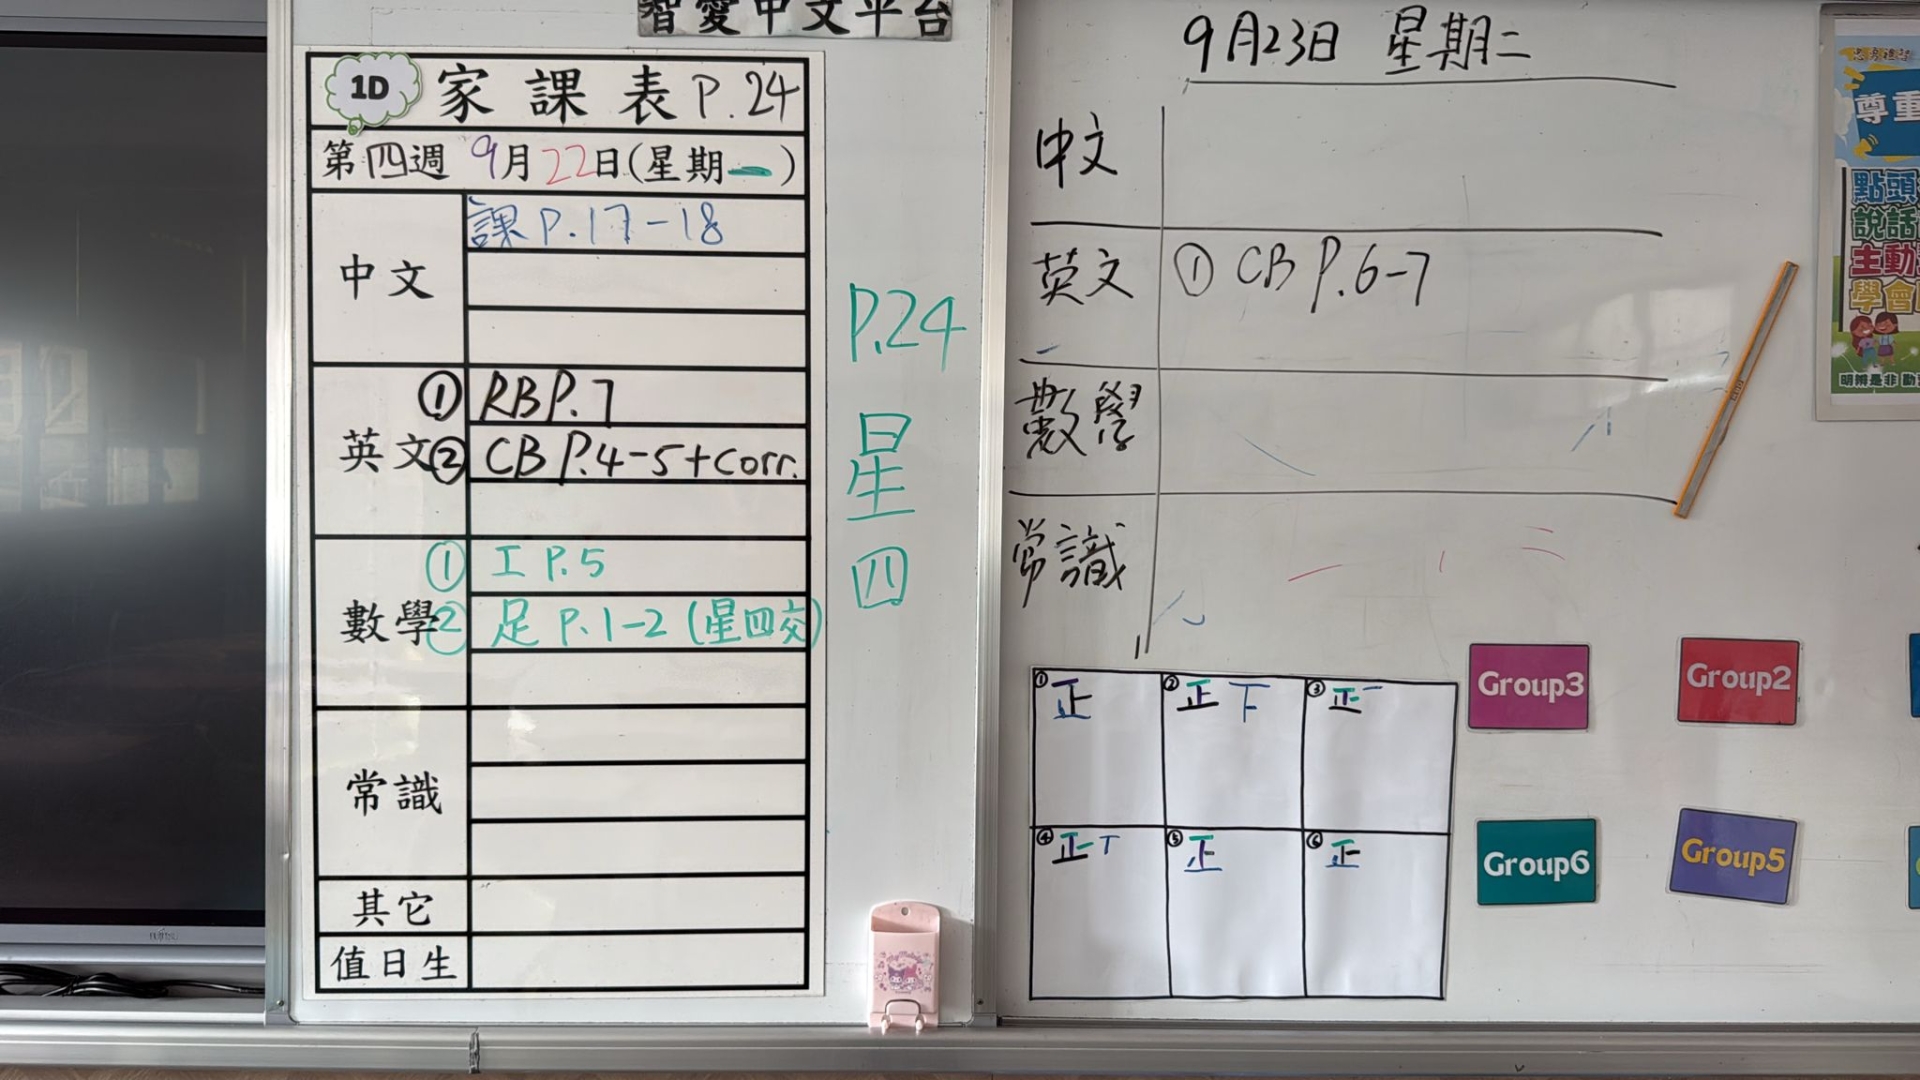 智愛中文平台
1D 家課表 P.24
第四週 9月22日(星期一)
中文
課 P.17-18
英文
① RB P.7
② CB P.4-5+Corr.
數學
① I P.5
② 足 P.1-2 (星四交)
常識
其它
值日生
P.24
星
四
9月23日 星期二
中文
英文 ① CB P.6-7
數學
常識
① 正
② 正下
③ 正一
④ 正丅
⑤ 正
⑥ 正
Group3
Group2
Group6
Group5
尊重
點頭
說話
主動
學會
明辨是非